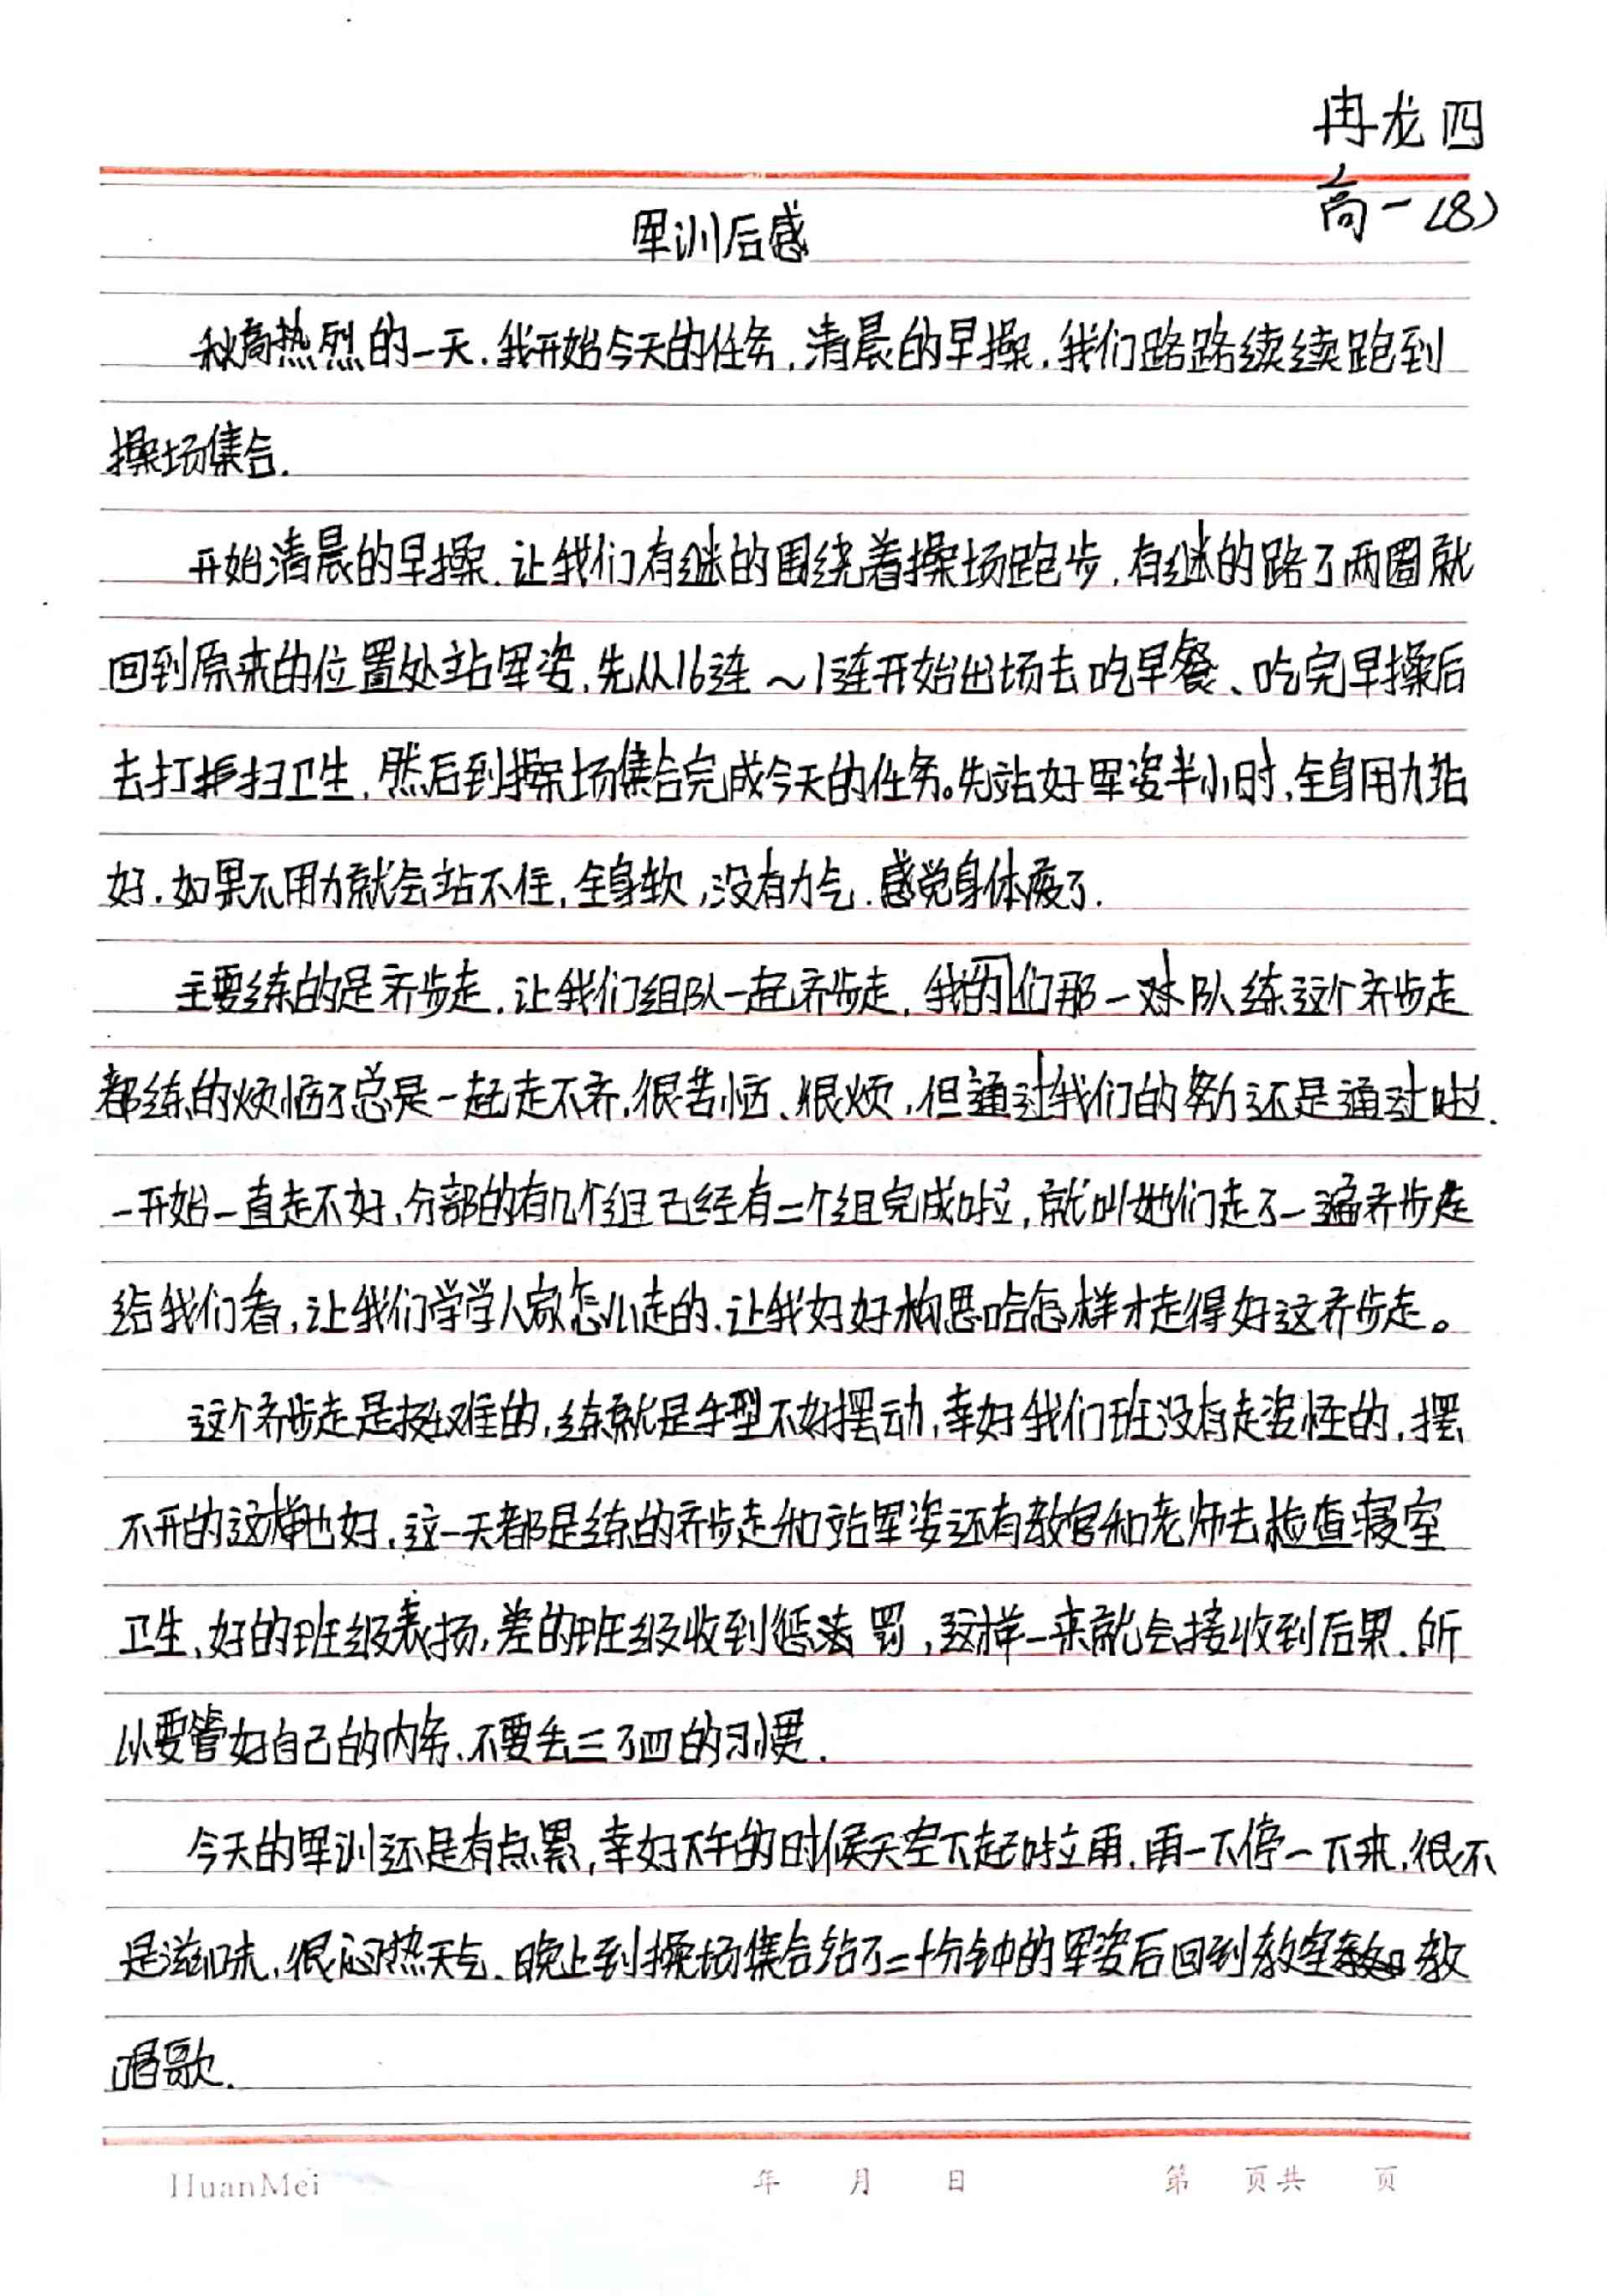 冉龙四
高一(8)
军训后感
秋高热烈的一天.我开始今天的任务,清晨的早操.我们路路续续跑到
操场集合.
开始清晨的早操.让我们有继的围绕着操场跑步,有继的路了两圈就
回到原来的位置处站军姿,先从16连~1连开始出场去吃早餐、吃完早操后
去打扫卫生,然后到操场集合完成今天的任务。先站好军姿半小时,全身用力站
好.如果不用力就会站不住,全身软,没有力气.感觉身体疲了.
主要练的是齐步走.让我们组队一起齐步走,我们那一队练这个齐步走
都练的烦恼了总是一起走不齐,很苦恼、很烦,但通过我们的努力还是通过啦.
一开始一直走不好,分部的有几个组已经有二个组完成啦,就叫她们走了一遍齐步走
给我们看,让我们学学人家怎么走的.让我好好构思哈怎样才走得好这齐步走。
这个齐步走是挺难的,练就是手型不好摆动,幸好我们班没有走姿怪的.摆
不开的这样也好.这一天都是练的齐步走和站军姿还有教官和老师去检查寝室
卫生、好的班级表扬,差的班级收到惩罚,这样一来就会接收到后果.所
以要管好自己的内务、不要丢三了四的习惯.
今天的军训还是有点累,幸好下午的时候天空下起啦雨.雨一下停一下来.很不
是滋味.很闷热天气.晚上到操场集合站了二十分钟的军姿后回到教室教
唱歌.
HuanMei
年 月 日 第 页共 页